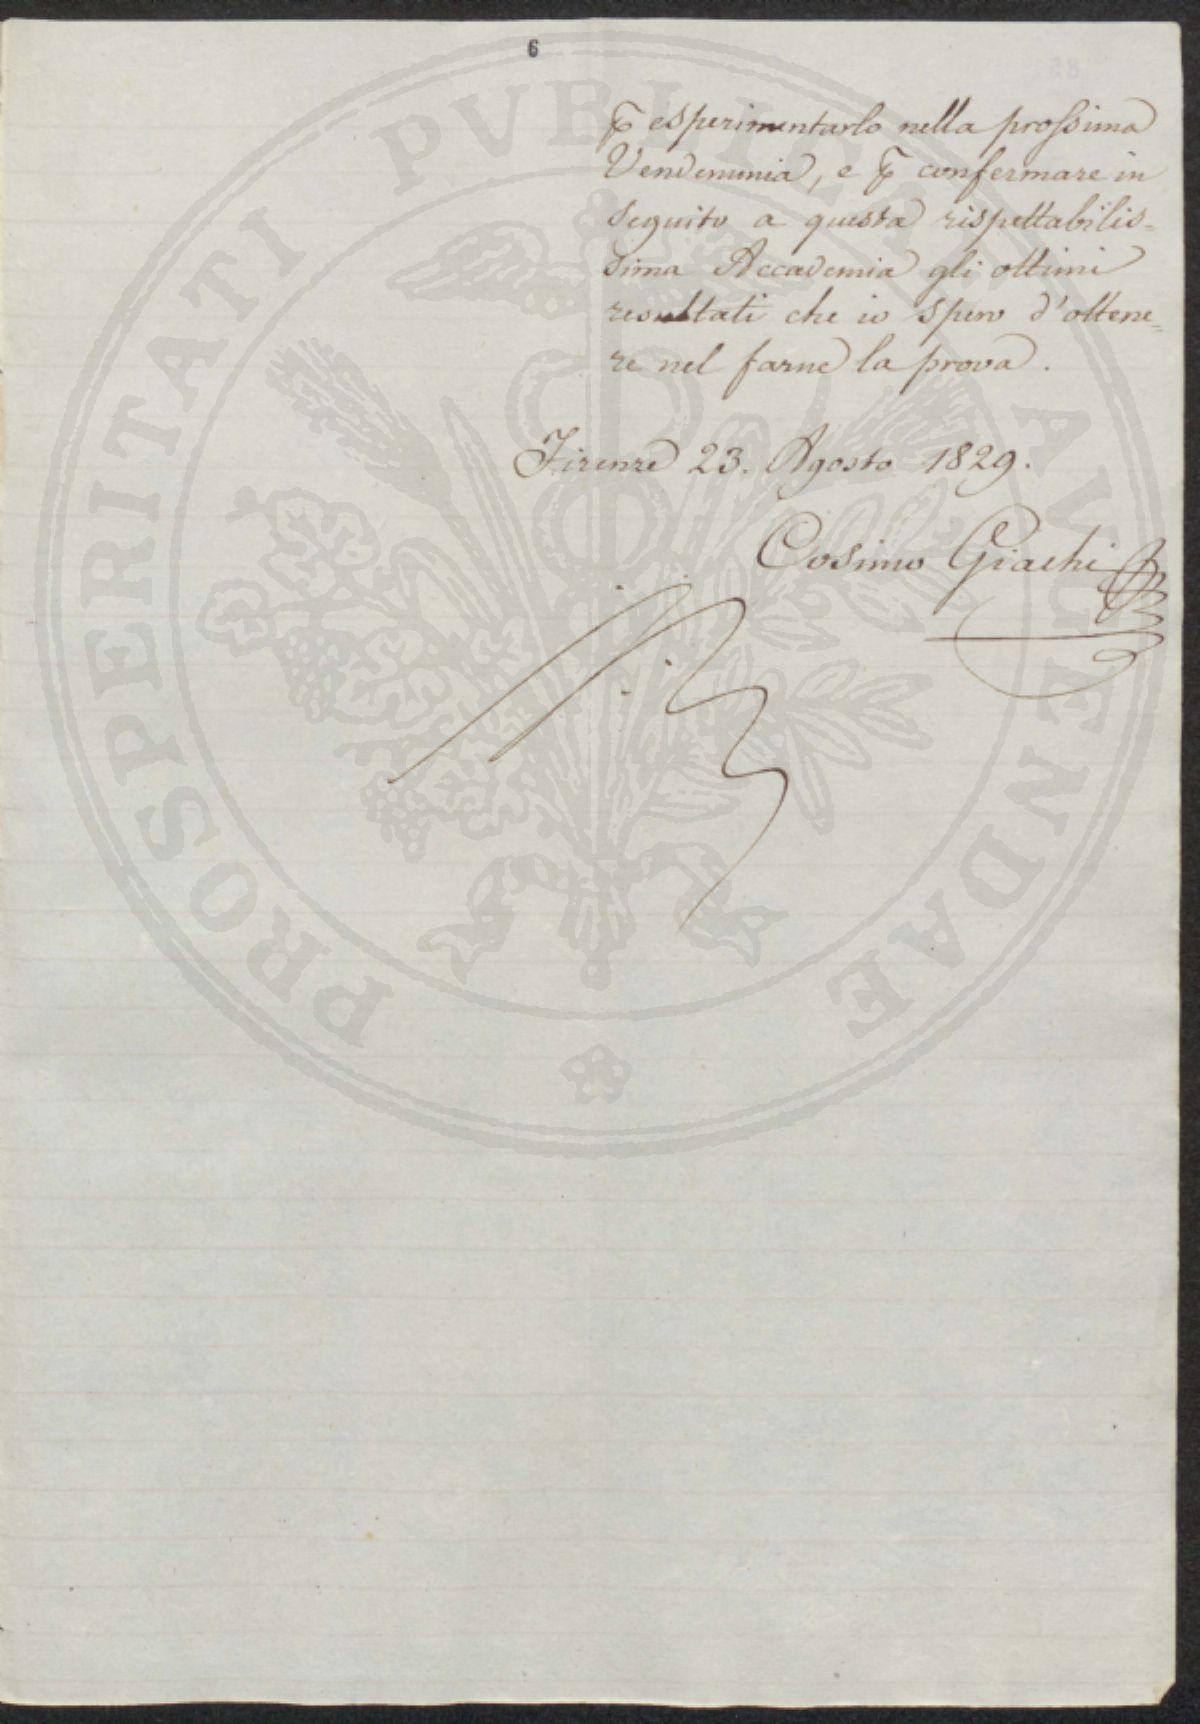 6
ꝑ esperimentarlo nella prossima
Vendemmia, e ꝑ confermare in
seguito a questa rispettabilis=
sima Accademia gli ottimi
resultati che io spero d'ottene=
re nel farne la prova.
Firenze 23. Agosto 1829.
Cosimo Giachi
PROSPERITATI PVBLICAE AVGENDAE